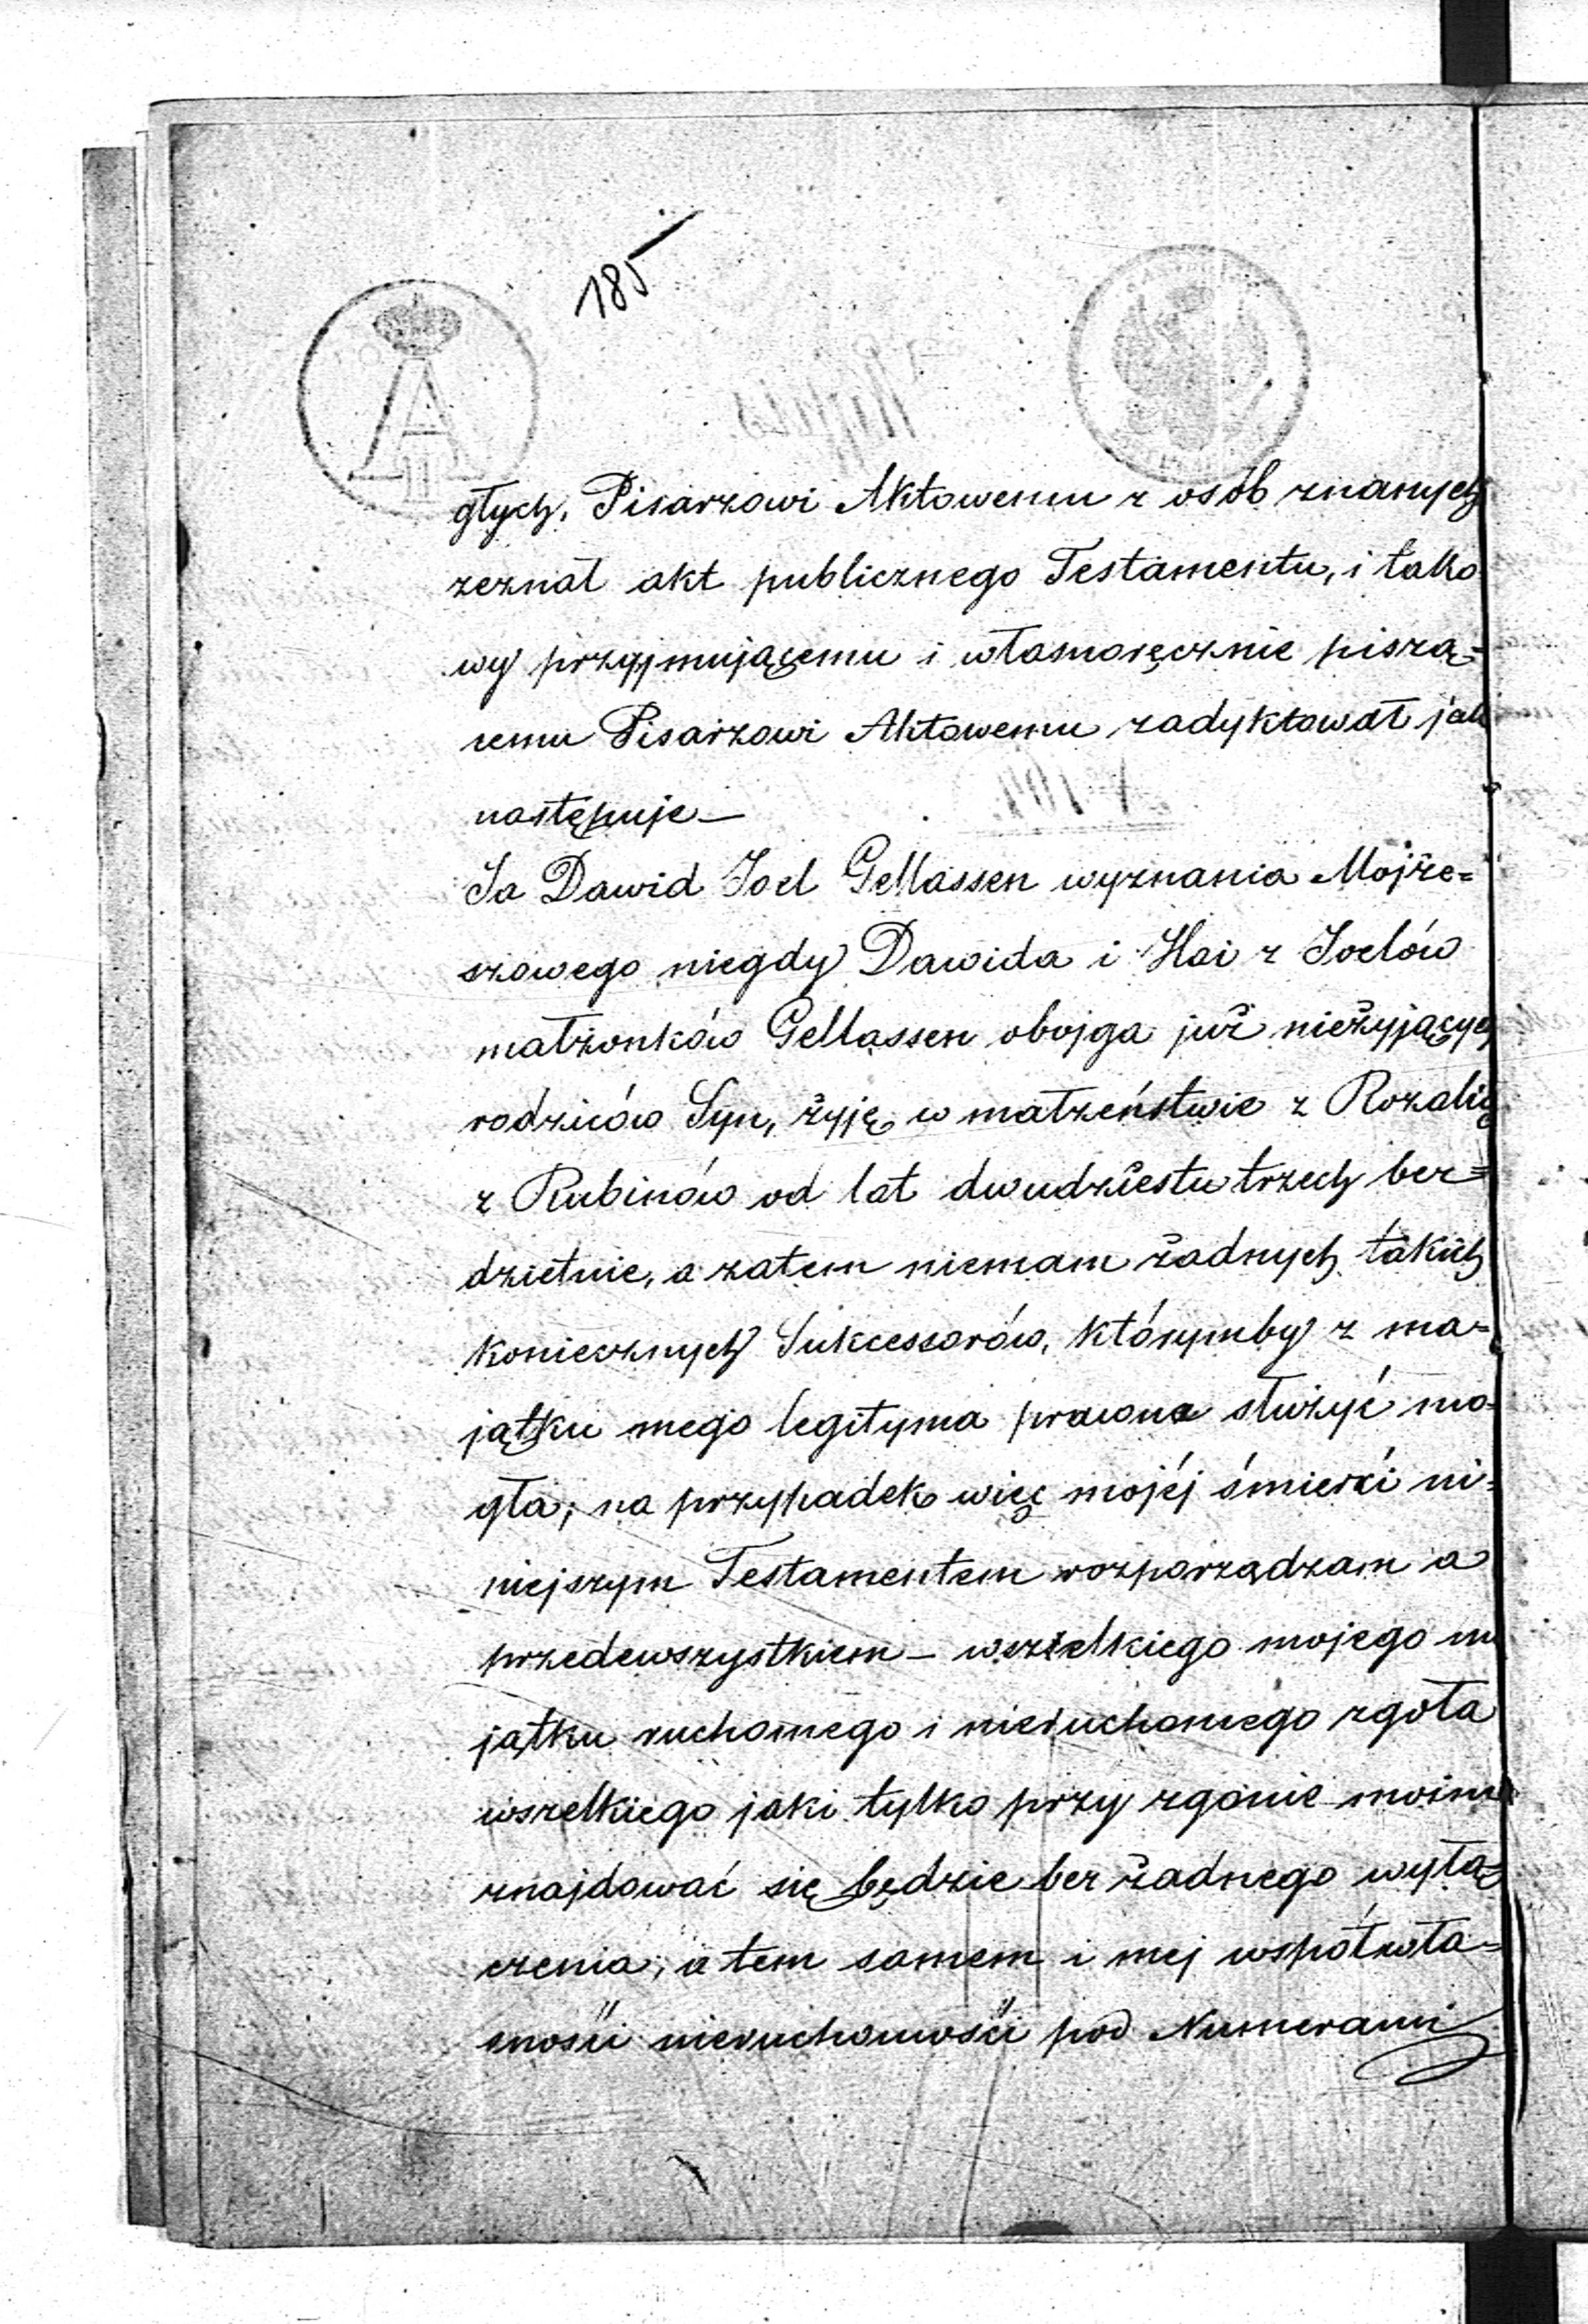 185
A
II
głych, Pisarzowi Aktowemu z osób znanych
zeznał akt publicznego Testamentu, i tako
wy przyjmującemu i własnoręcznie piszą=
cemu Pisarzowi Aktowemu zadyktował jak
następuje —
Ja Dawid Joel Gellassen wyznania Mojże=
szowego niegdy Dawida i Hai z Joelów
małżonków Gellassen obojga już nieżyjących
rodziców Syn, żyję w małżeństwie z Rozalią
z Rubinów od lat dwudziestu trzech bez=
dzietnie, a zatem niemam żadnych takich
koniecznych Sukcessorów, którymby z ma=
jątku mego legityma prawna służyć mo=
gła; na przypadek więc mojéj śmierci ni=
niejszym Testamentem rozporządzam a
przedewszystkiem — wszelkiego mojego ma
jątku ruchomego i nieruchomego zgoła
wszelkiego jaki tylko przy zgonie moim
znajdować się będzie bez żadnego wyłą=
czenia, a tem samem i mej współwła=
sności nieruchomości pod Numerami